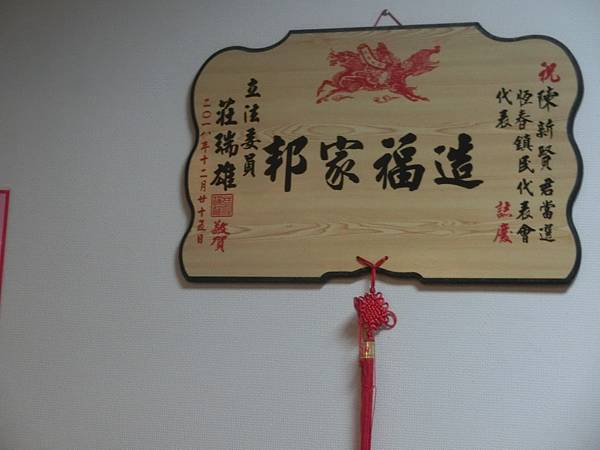 祝陳新賢君當選
恆春鎮民代表會
代表 誌慶
造福家邦
立法委員
莊瑞雄 敬賀
二〇一八年十二月廿十五日